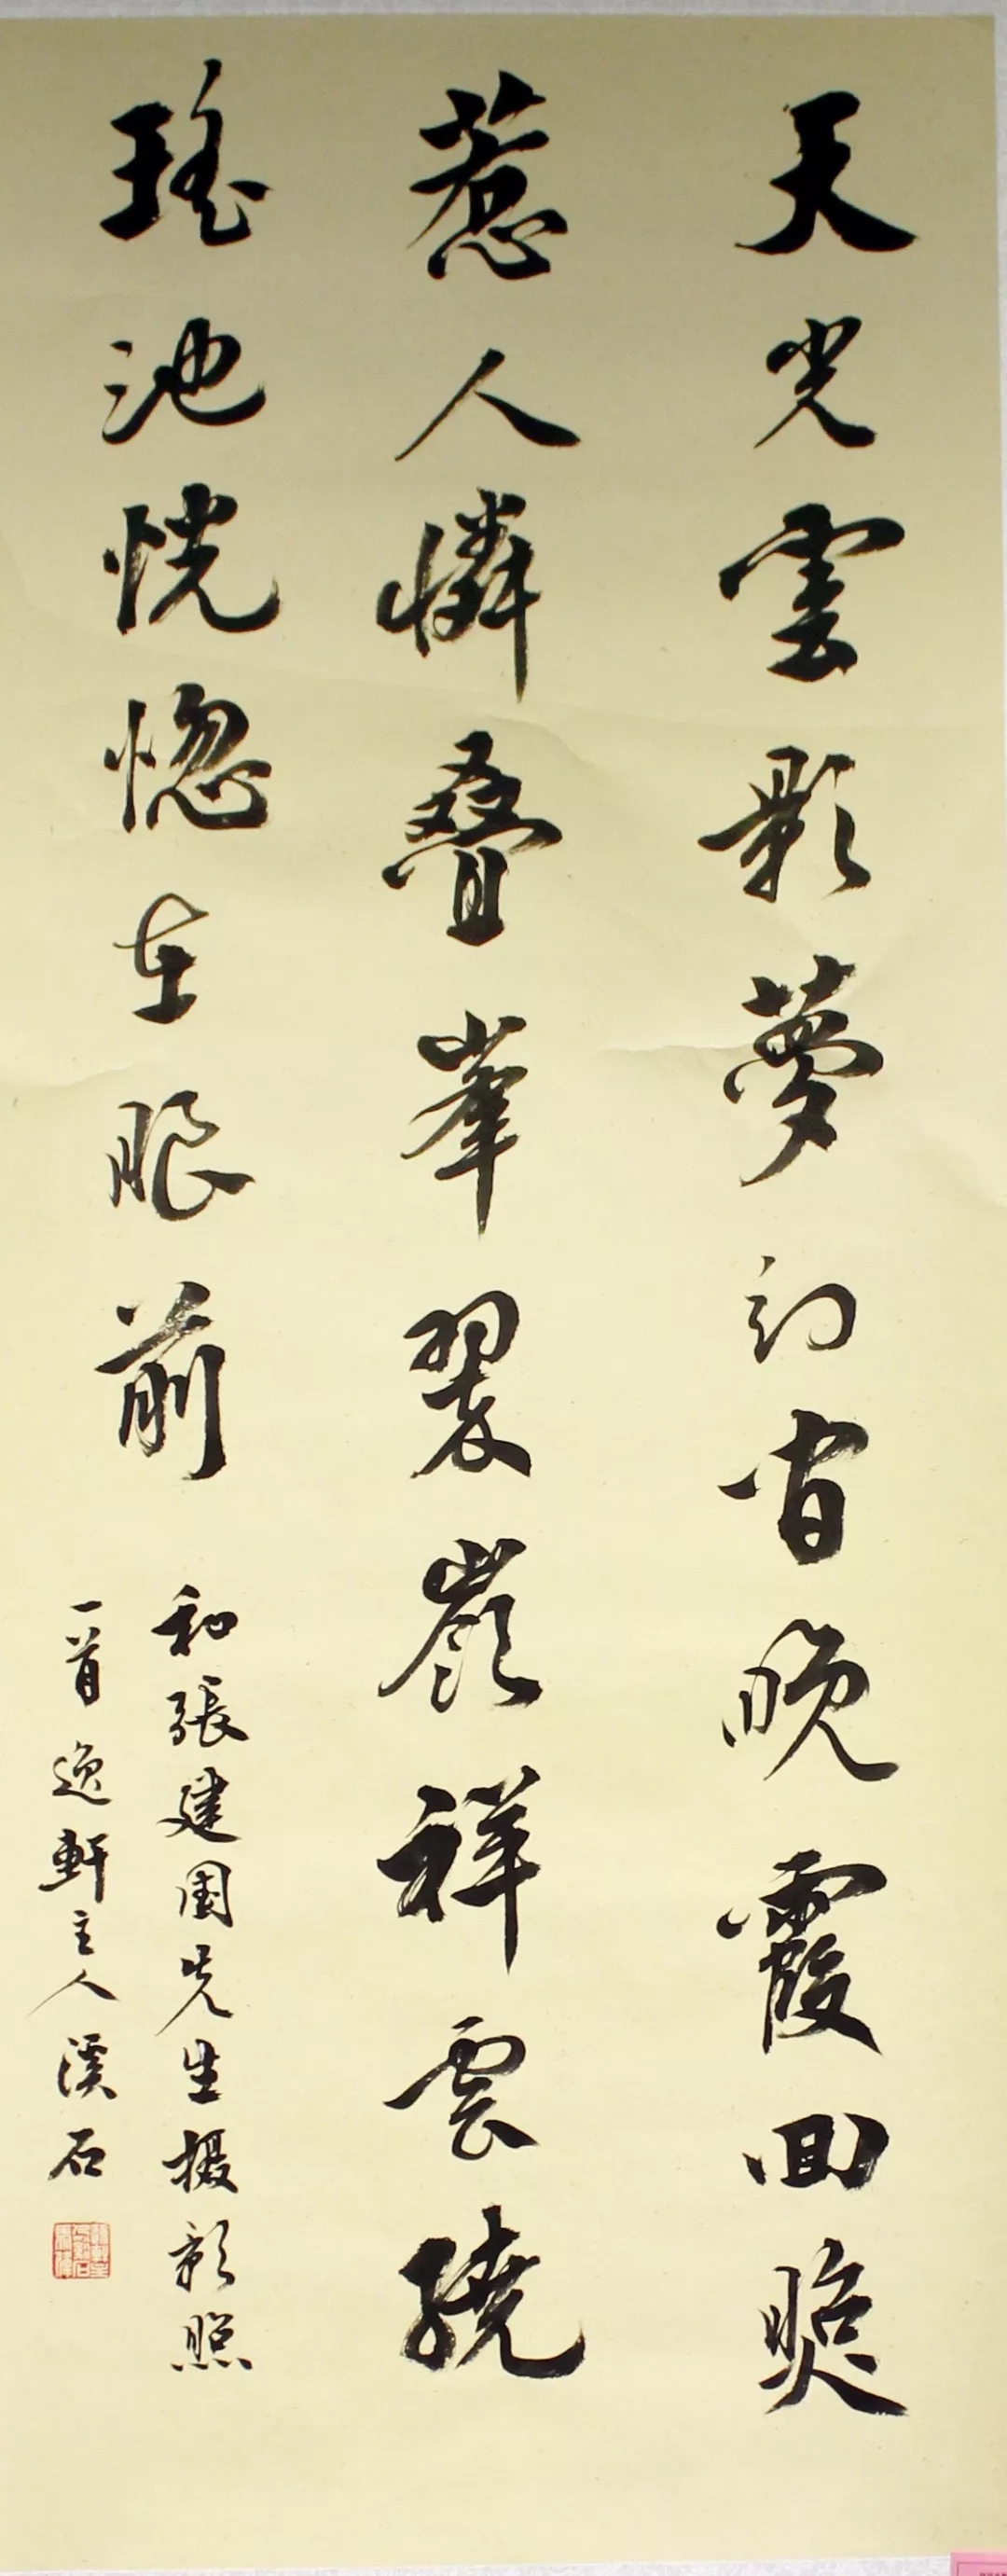 天光雲影夢幻間晚霞回照
惹人憐叠峯翠嶺祥雲繞
瑤池恍惚在眼前
和張建國先生摄影照
一首逸軒主人溪石